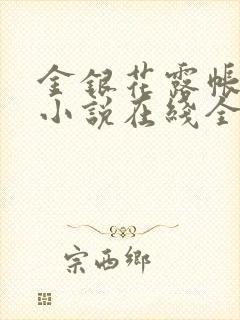 金銀花露帳
小說在綫全
宗西鄉